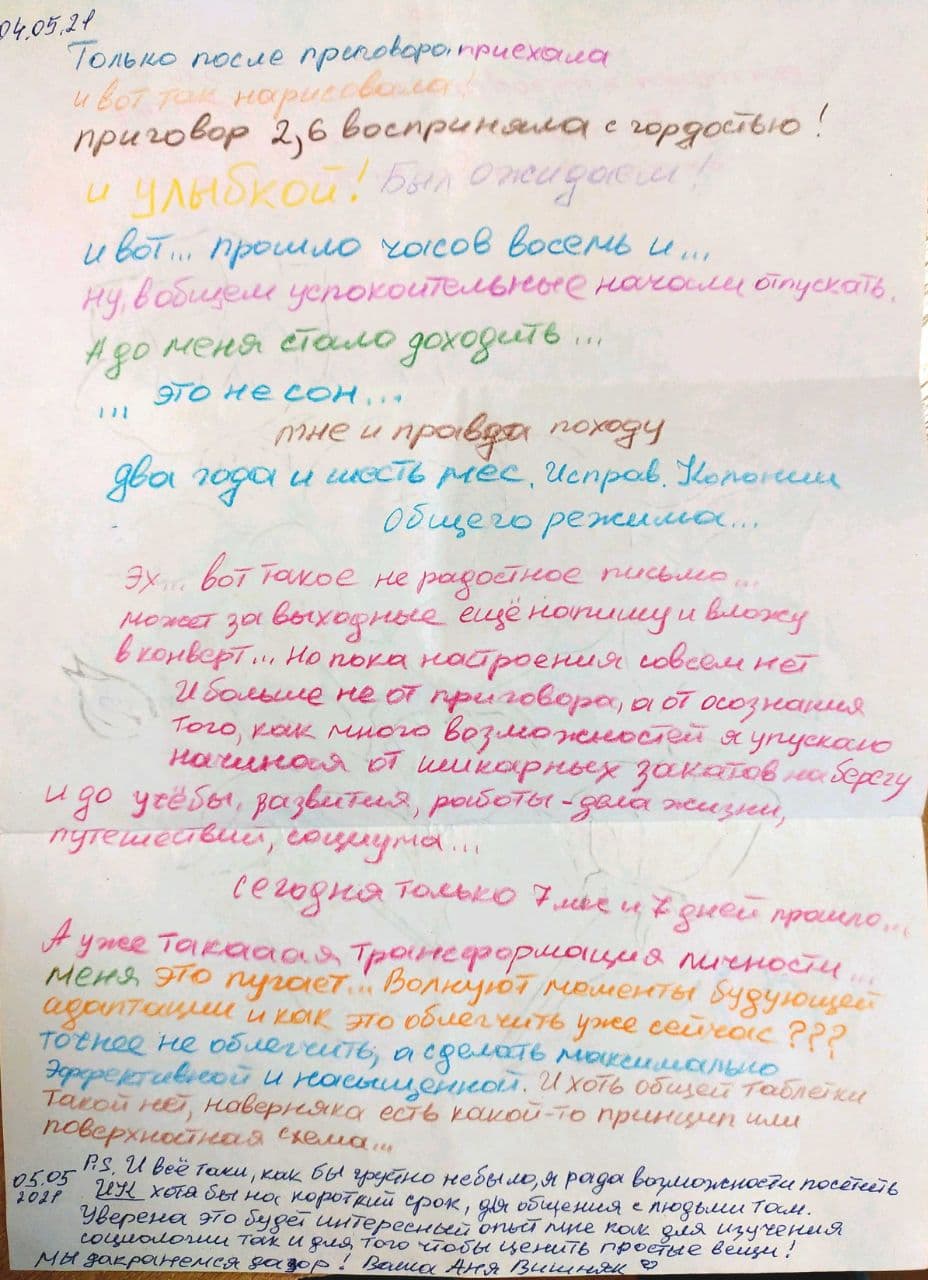 04.05.21
Только после приговора приехала
и вот так нарисовала!
приговор 2,6 восприняла с гордостью!
и улыбкой! Был ожидаем!
и вот... прошло часов восемь и...
Ну, в общем успокоительные начали отпускать.
А до меня стало доходить...
... это не сон...
мне и правда походу
два года и шесть мес. Исправ. Колонии
Общего режима...
Эх... вот такое не радостное письмо...
может за выходные ещё напишу и вложу
в конверт... Но пока настроения совсем нет
И больше не от приговора, а от осознания
того, как много возможностей я упускаю
начиная от шикарных закатов на берегу
и до учёбы, развития, работы - дела жизни,
путешествий, социума...
Сегодня только 7 мес и 7 дней прошло...
А уже такааая трансформация личности...
меня это пугает... Волнуют моменты будующей
адаптации и как это облегчить уже сейчас???
точнее не облегчить, а сделать максимально
эффективной и насыщенной. И хоть общей таблетки
такой нет, наверняка есть какой-то принцип или
поверхностная схема...
05.05
2021
P.S. И всё таки, как бы грустно небыло, я рада возможности посетить
ИК хотя бы на короткий срок, для общения с людьми там.
Уверена это будет интересный опыт мне как для изучения
социологии так и для того чтобы ценить простые вещи!
Мы дакранемся да зор! Ваша Аня Вишняк ♡